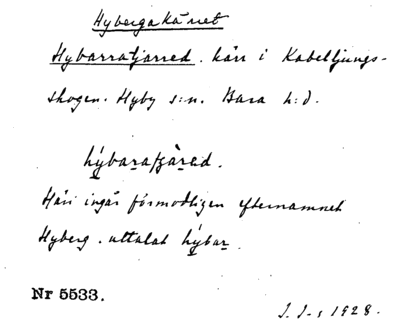 Hyberga kärret
Hybarratjärred. kärr i Kabelljungs-
skogen. Hyby s:n. Bara h:d.
hýbarafjäred.
Häri ingår förmodligen efternamnet
Hyberg. uttalat hýbar.
Nr 5533.
J. J-s 1928.